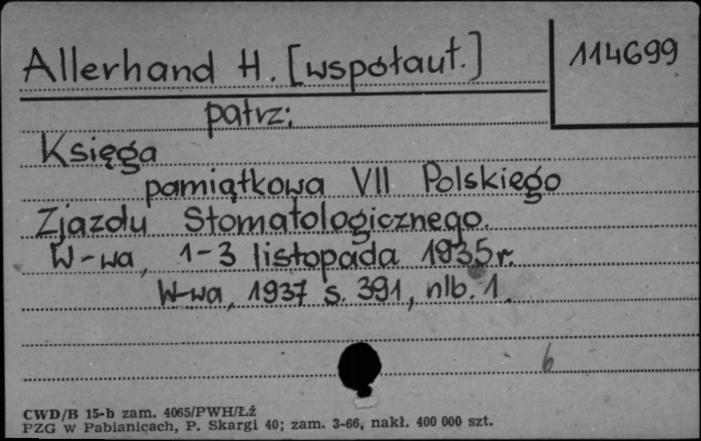 Allerhand H. [współaut.]
114699
patrz:
Księga
pamiątkowa VII Polskiego
Zjazdu Stomatologicznego.
W-wa, 1-3 listopada 1935 r.
W-wa, 1937 s. 391, nlb. 1.
6
CWD/B 15-b zam. 4065/PWH/Łź
PZG w Pabianicach, P. Skargi 40; zam. 3-66, nakł. 400 000 szt.